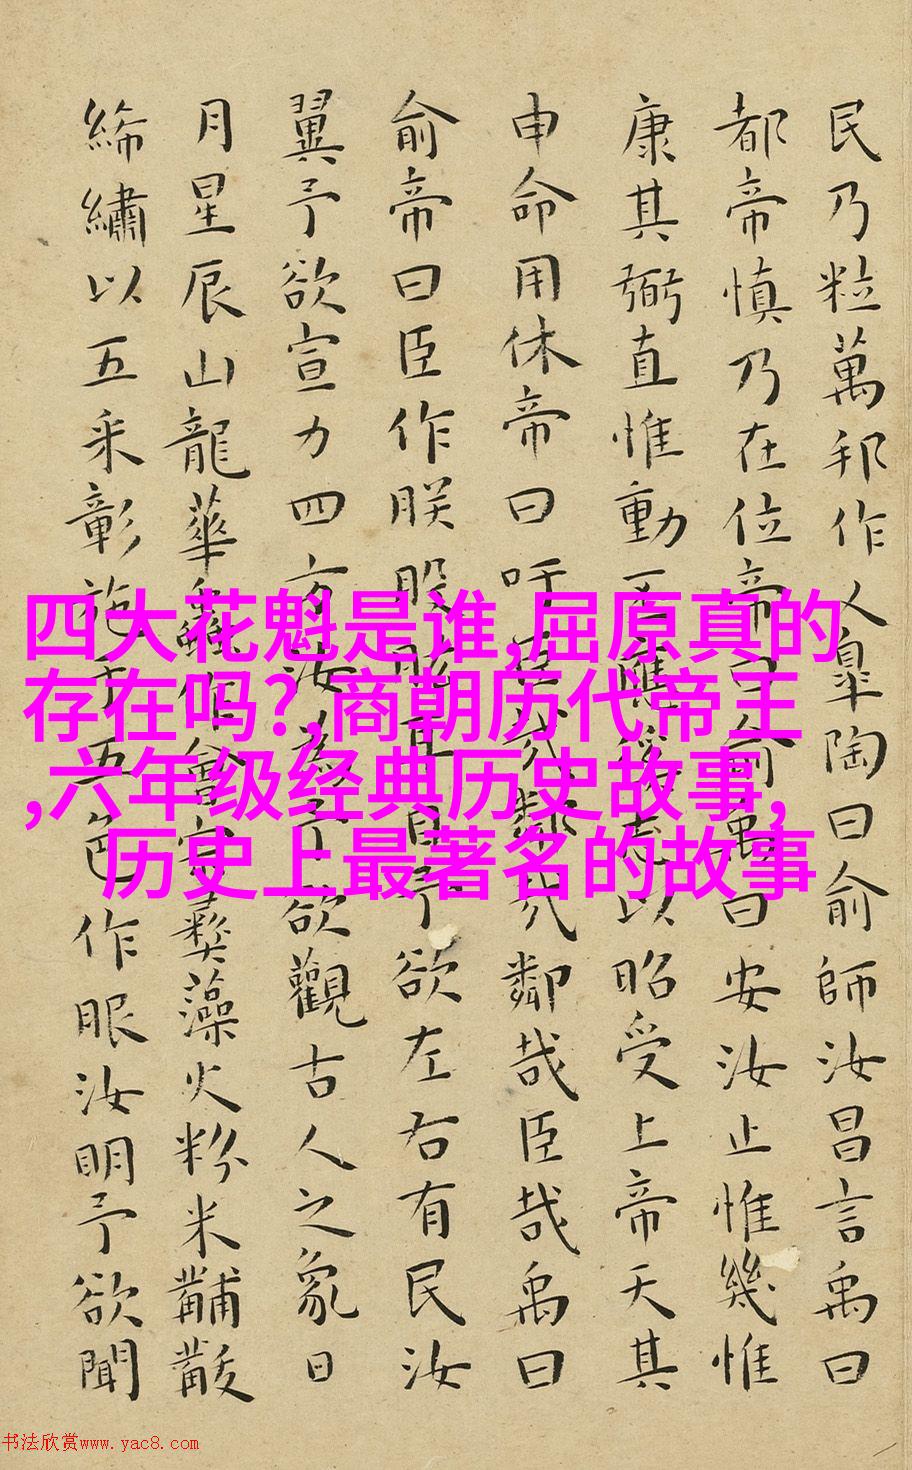 民乃粒萬邦作乂皐陶曰俞師汝昌言禹曰
都帝慎乃在位帝曰俞禹曰安汝止惟幾惟
康其弼直惟動丕應徯志以昭受上帝天其
申命用休帝曰吁臣哉鄰哉鄰哉臣哉禹曰
俞帝曰臣作朕股肱耳目予欲左右有民汝
翼予欲宣力四方汝為予欲觀古人之象日
月星辰山龍華蟲作會宗彝藻火粉米黼黻
絺繡以五采彰施于五色作服汝明予欲聞
四大花魁是谁,屈原真的
存在吗?,商朝历代帝王
,六年级经典历史故事,
历史上最著名的故事
书法欣赏www.yac8.com